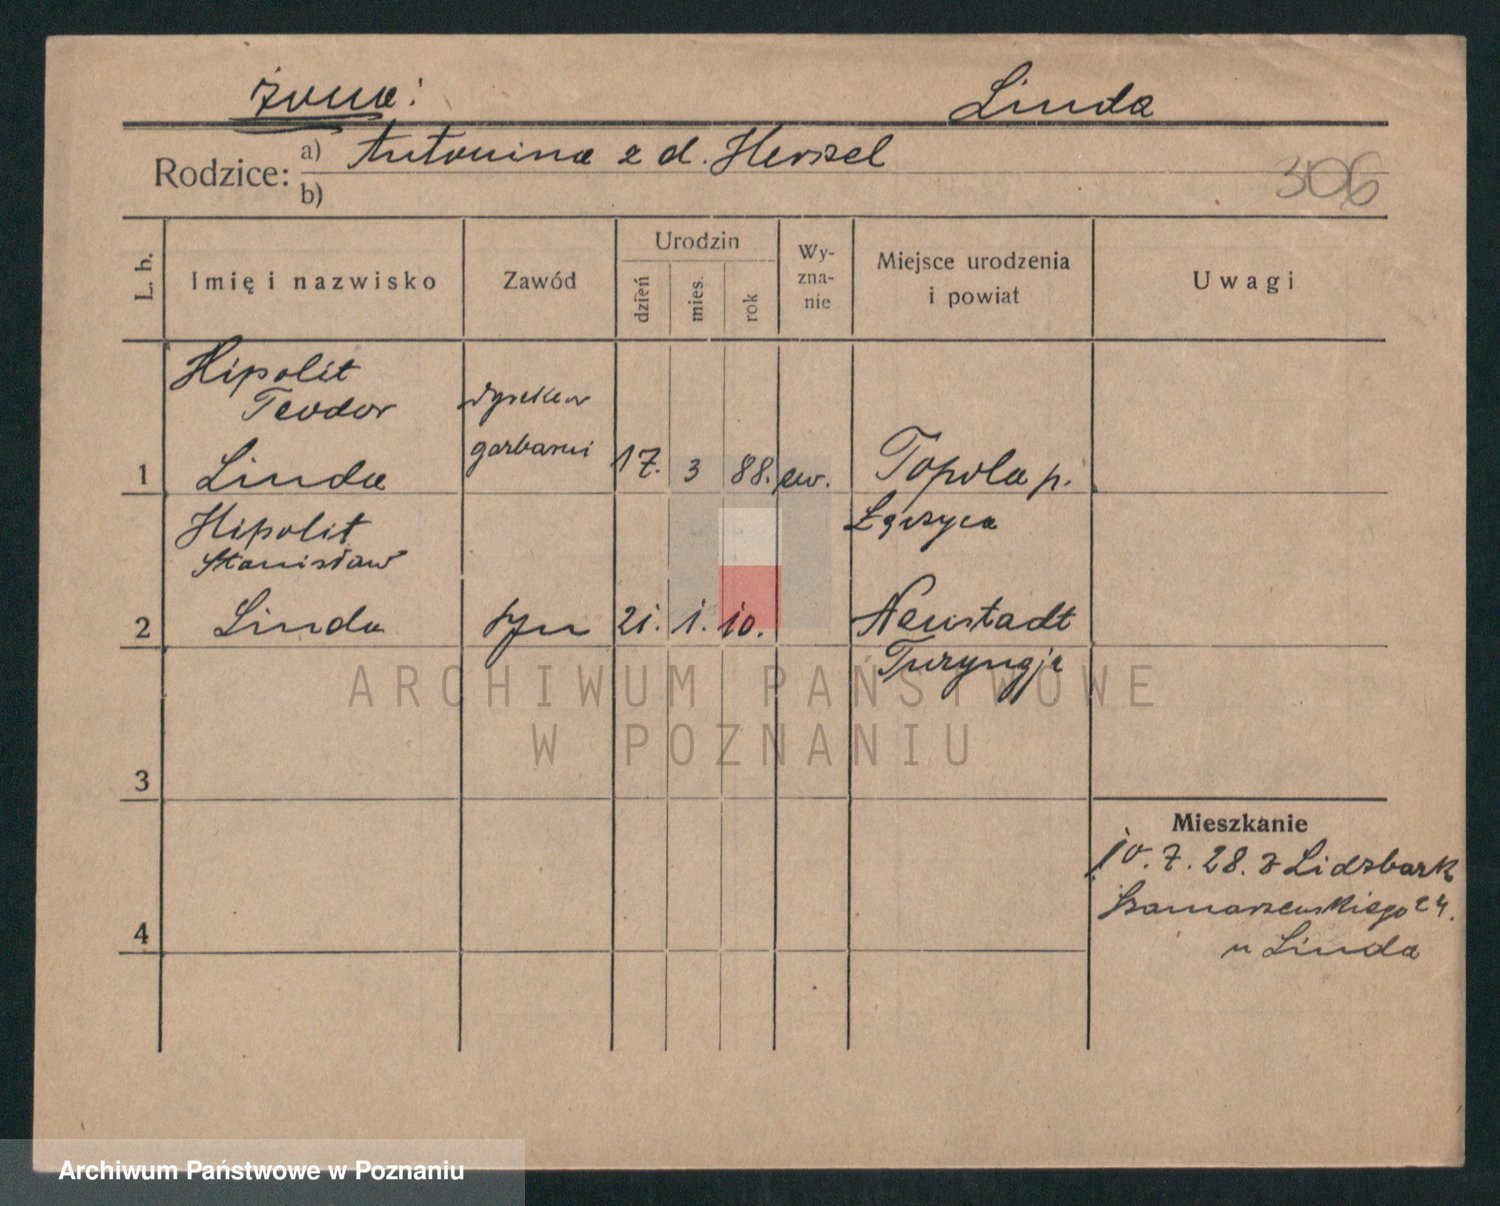 żona:
Linda
Rodzice:
a) Antonina z d. Herszel
b)
306
L. b.
Imię i nazwisko
Zawód
Urodzin
dzień
mies.
rok
Wy-
zna-
nie
Miejsce urodzenia
i powiat
Uwagi
Hipolit
Teodor
garbarni
1 Linda 17. 3 88. ew. Topola p.
Łęczyca
Hipolit
Stanisław
2 Linda syn 21. 1. 10. Neustadt
Turyngja
3
4
Mieszkanie
10. 7. 28. z Lidzbark
Szamarzewskiego 24.
u Linda
ARCHIWUM PAŃSTWOWE
W POZNANIU
Archiwum Państwowe w Poznaniu